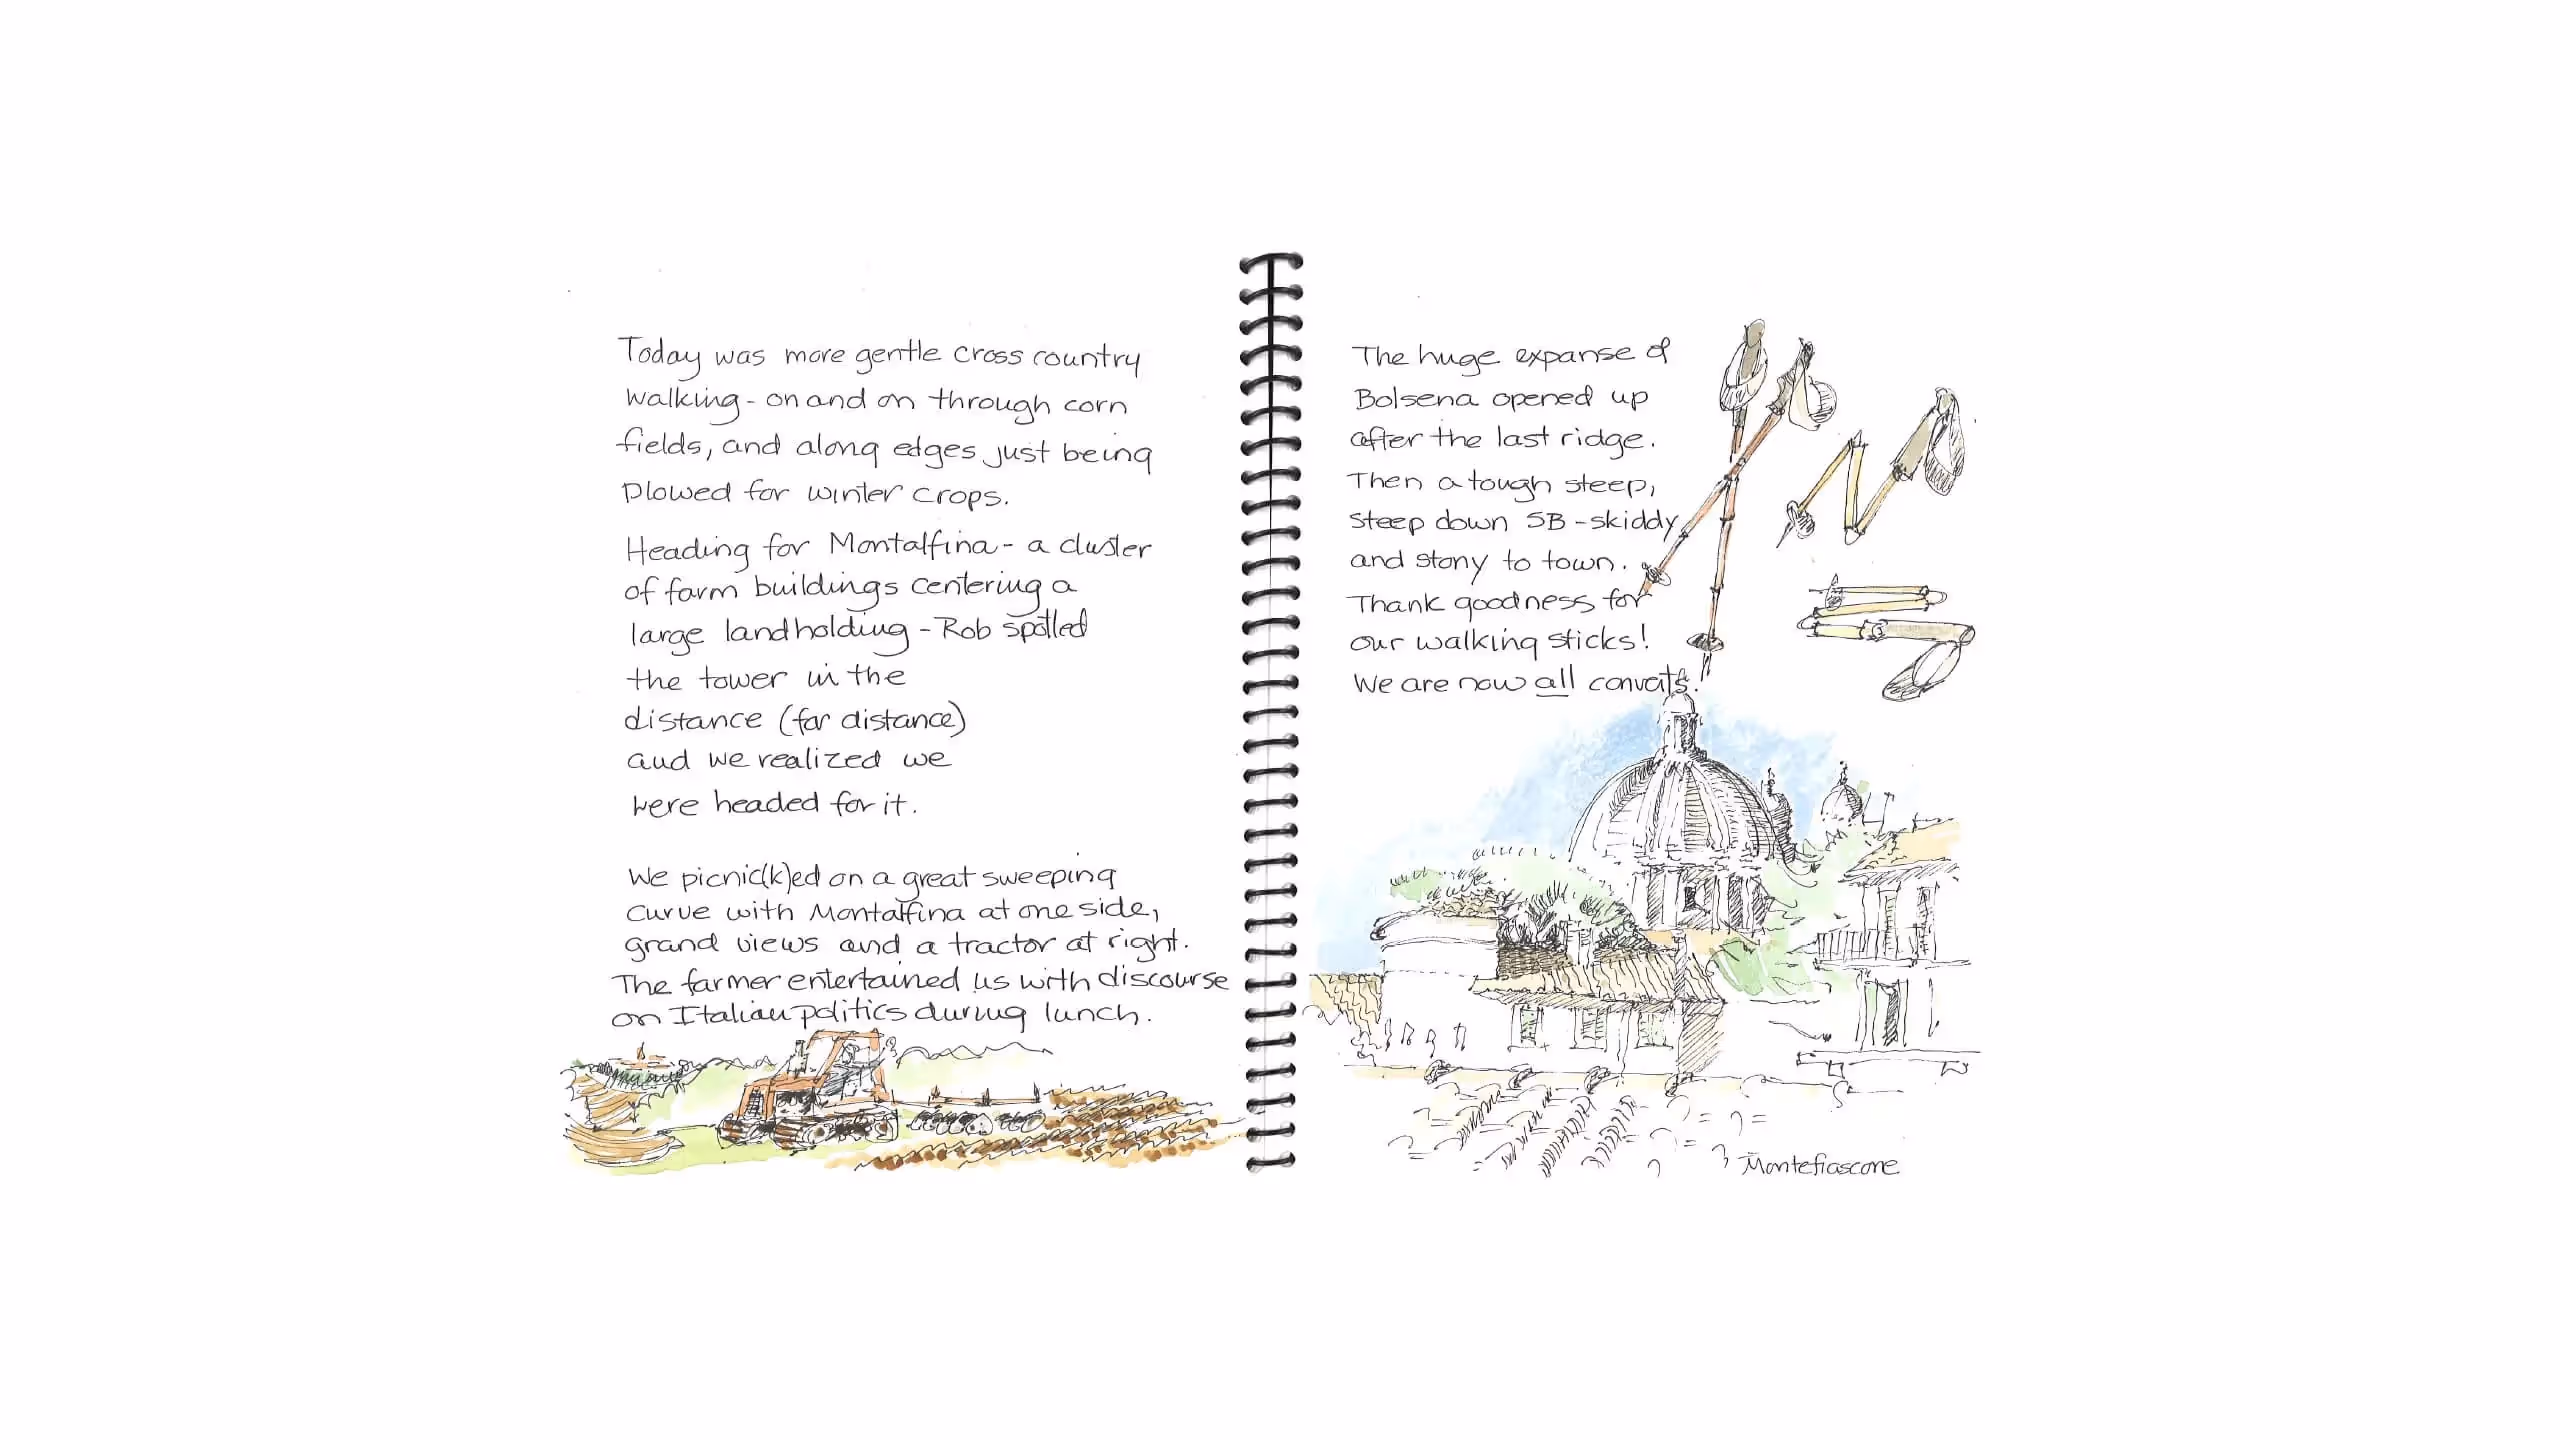 Today was more gentle cross country
walking - on and on through corn
fields, and along edges just being
plowed for winter crops.
Heading for Montalfina - a cluster
of farm buildings centering a
large landholding - Rob spotted
the tower in the
distance (far distance)
and we realized we
were headed for it.
We picnic(k)ed on a great sweeping
curve with Montalfina at one side,
grand views and a tractor at right.
The farmer entertained us with discourse
on Italian politics during lunch.
The huge expanse of
Bolsena opened up
after the last ridge.
Then a tough steep,
steep down SB - skiddy
and stony to town.
Thank goodness for
our walking sticks!
We are now all converts.
Montefiascone